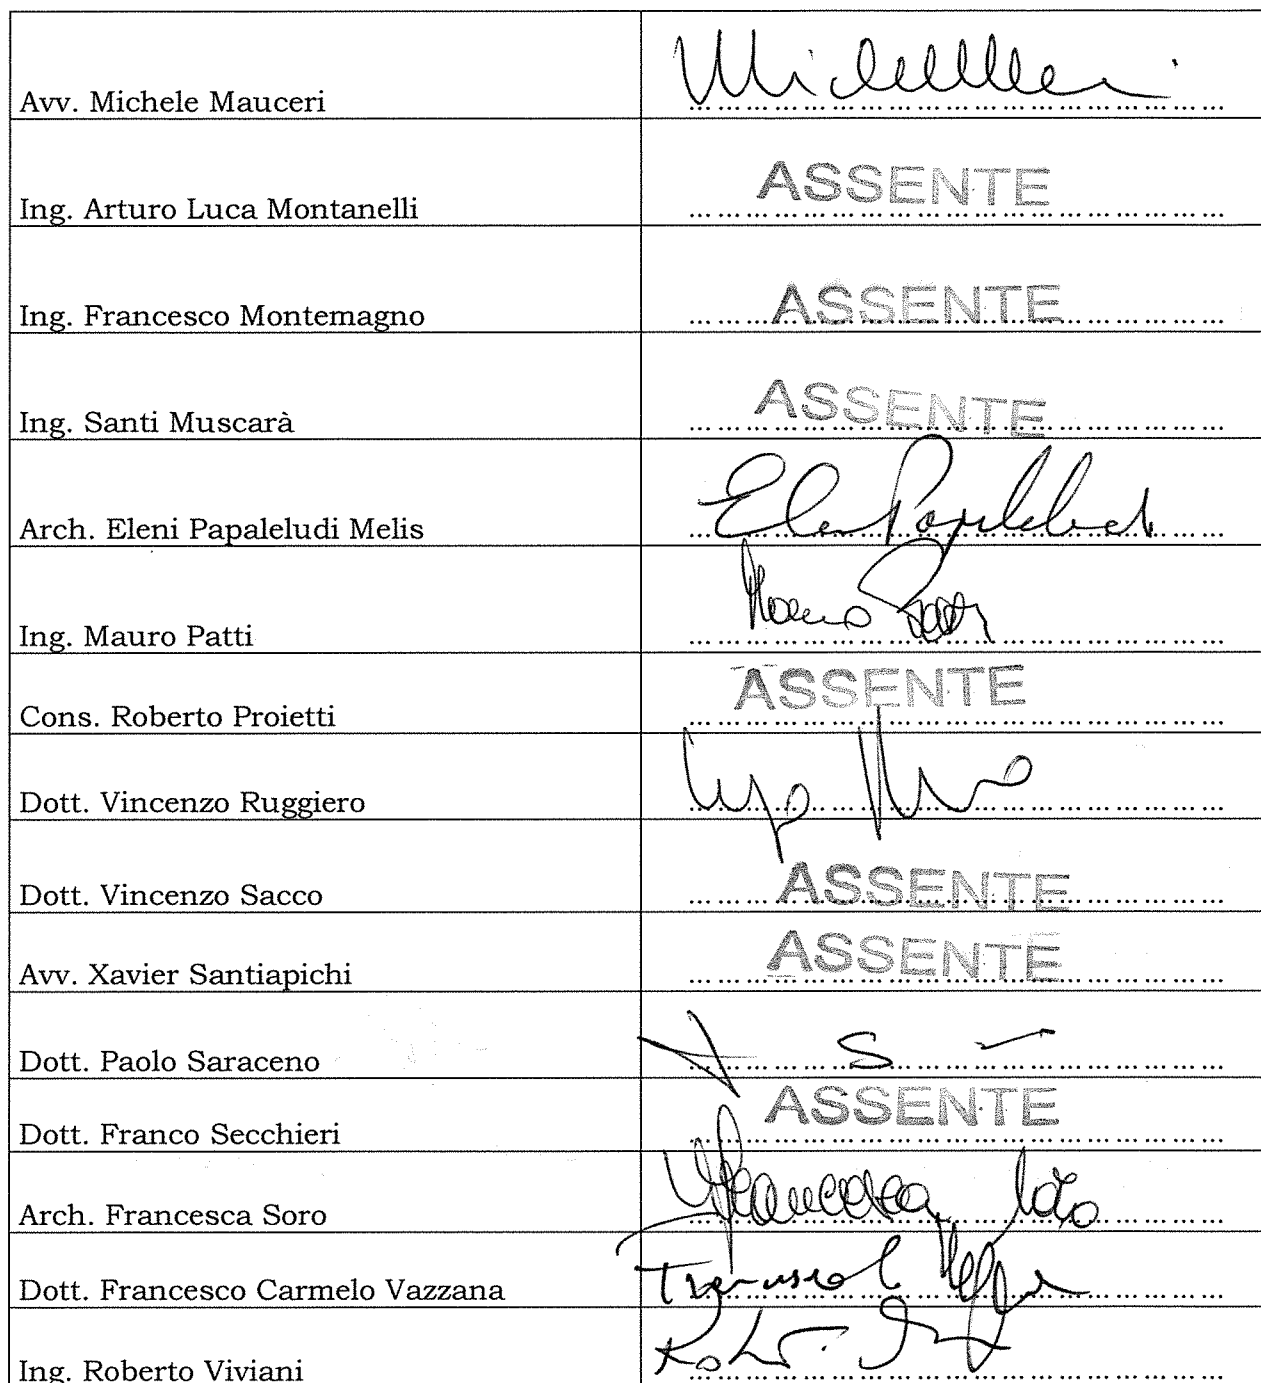 Avv. Michele Mauceri
Ing. Arturo Luca Montanelli ASSENTE
Ing. Francesco Montemagno ASSENTE
Ing. Santi Muscarà ASSENTE
Arch. Eleni Papaleludi Melis
Ing. Mauro Patti Mauro Patti
Cons. Roberto Proietti ASSENTE
Dott. Vincenzo Ruggiero
Dott. Vincenzo Sacco ASSENTE
Avv. Xavier Santiapichi ASSENTE
Dott. Paolo Saraceno
Dott. Franco Secchieri ASSENTE
Arch. Francesca Soro Francesca Soro
Dott. Francesco Carmelo Vazzana
Ing. Roberto Viviani